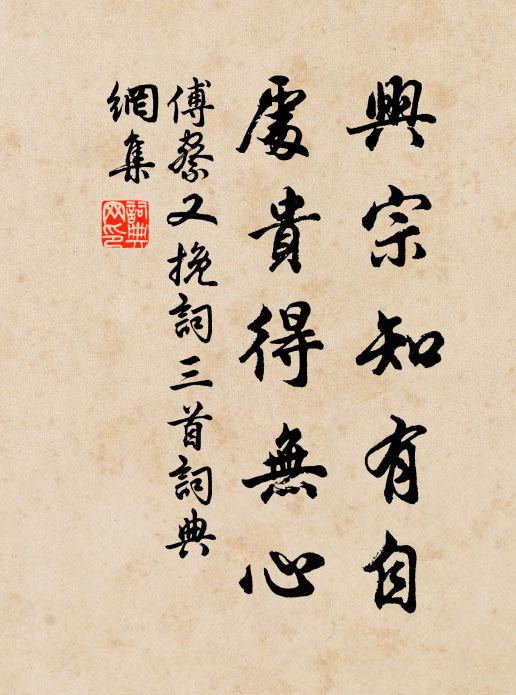 興宗知有自
處貴得無心
傅察又挽詞三首詞典
網集
詞典
网印